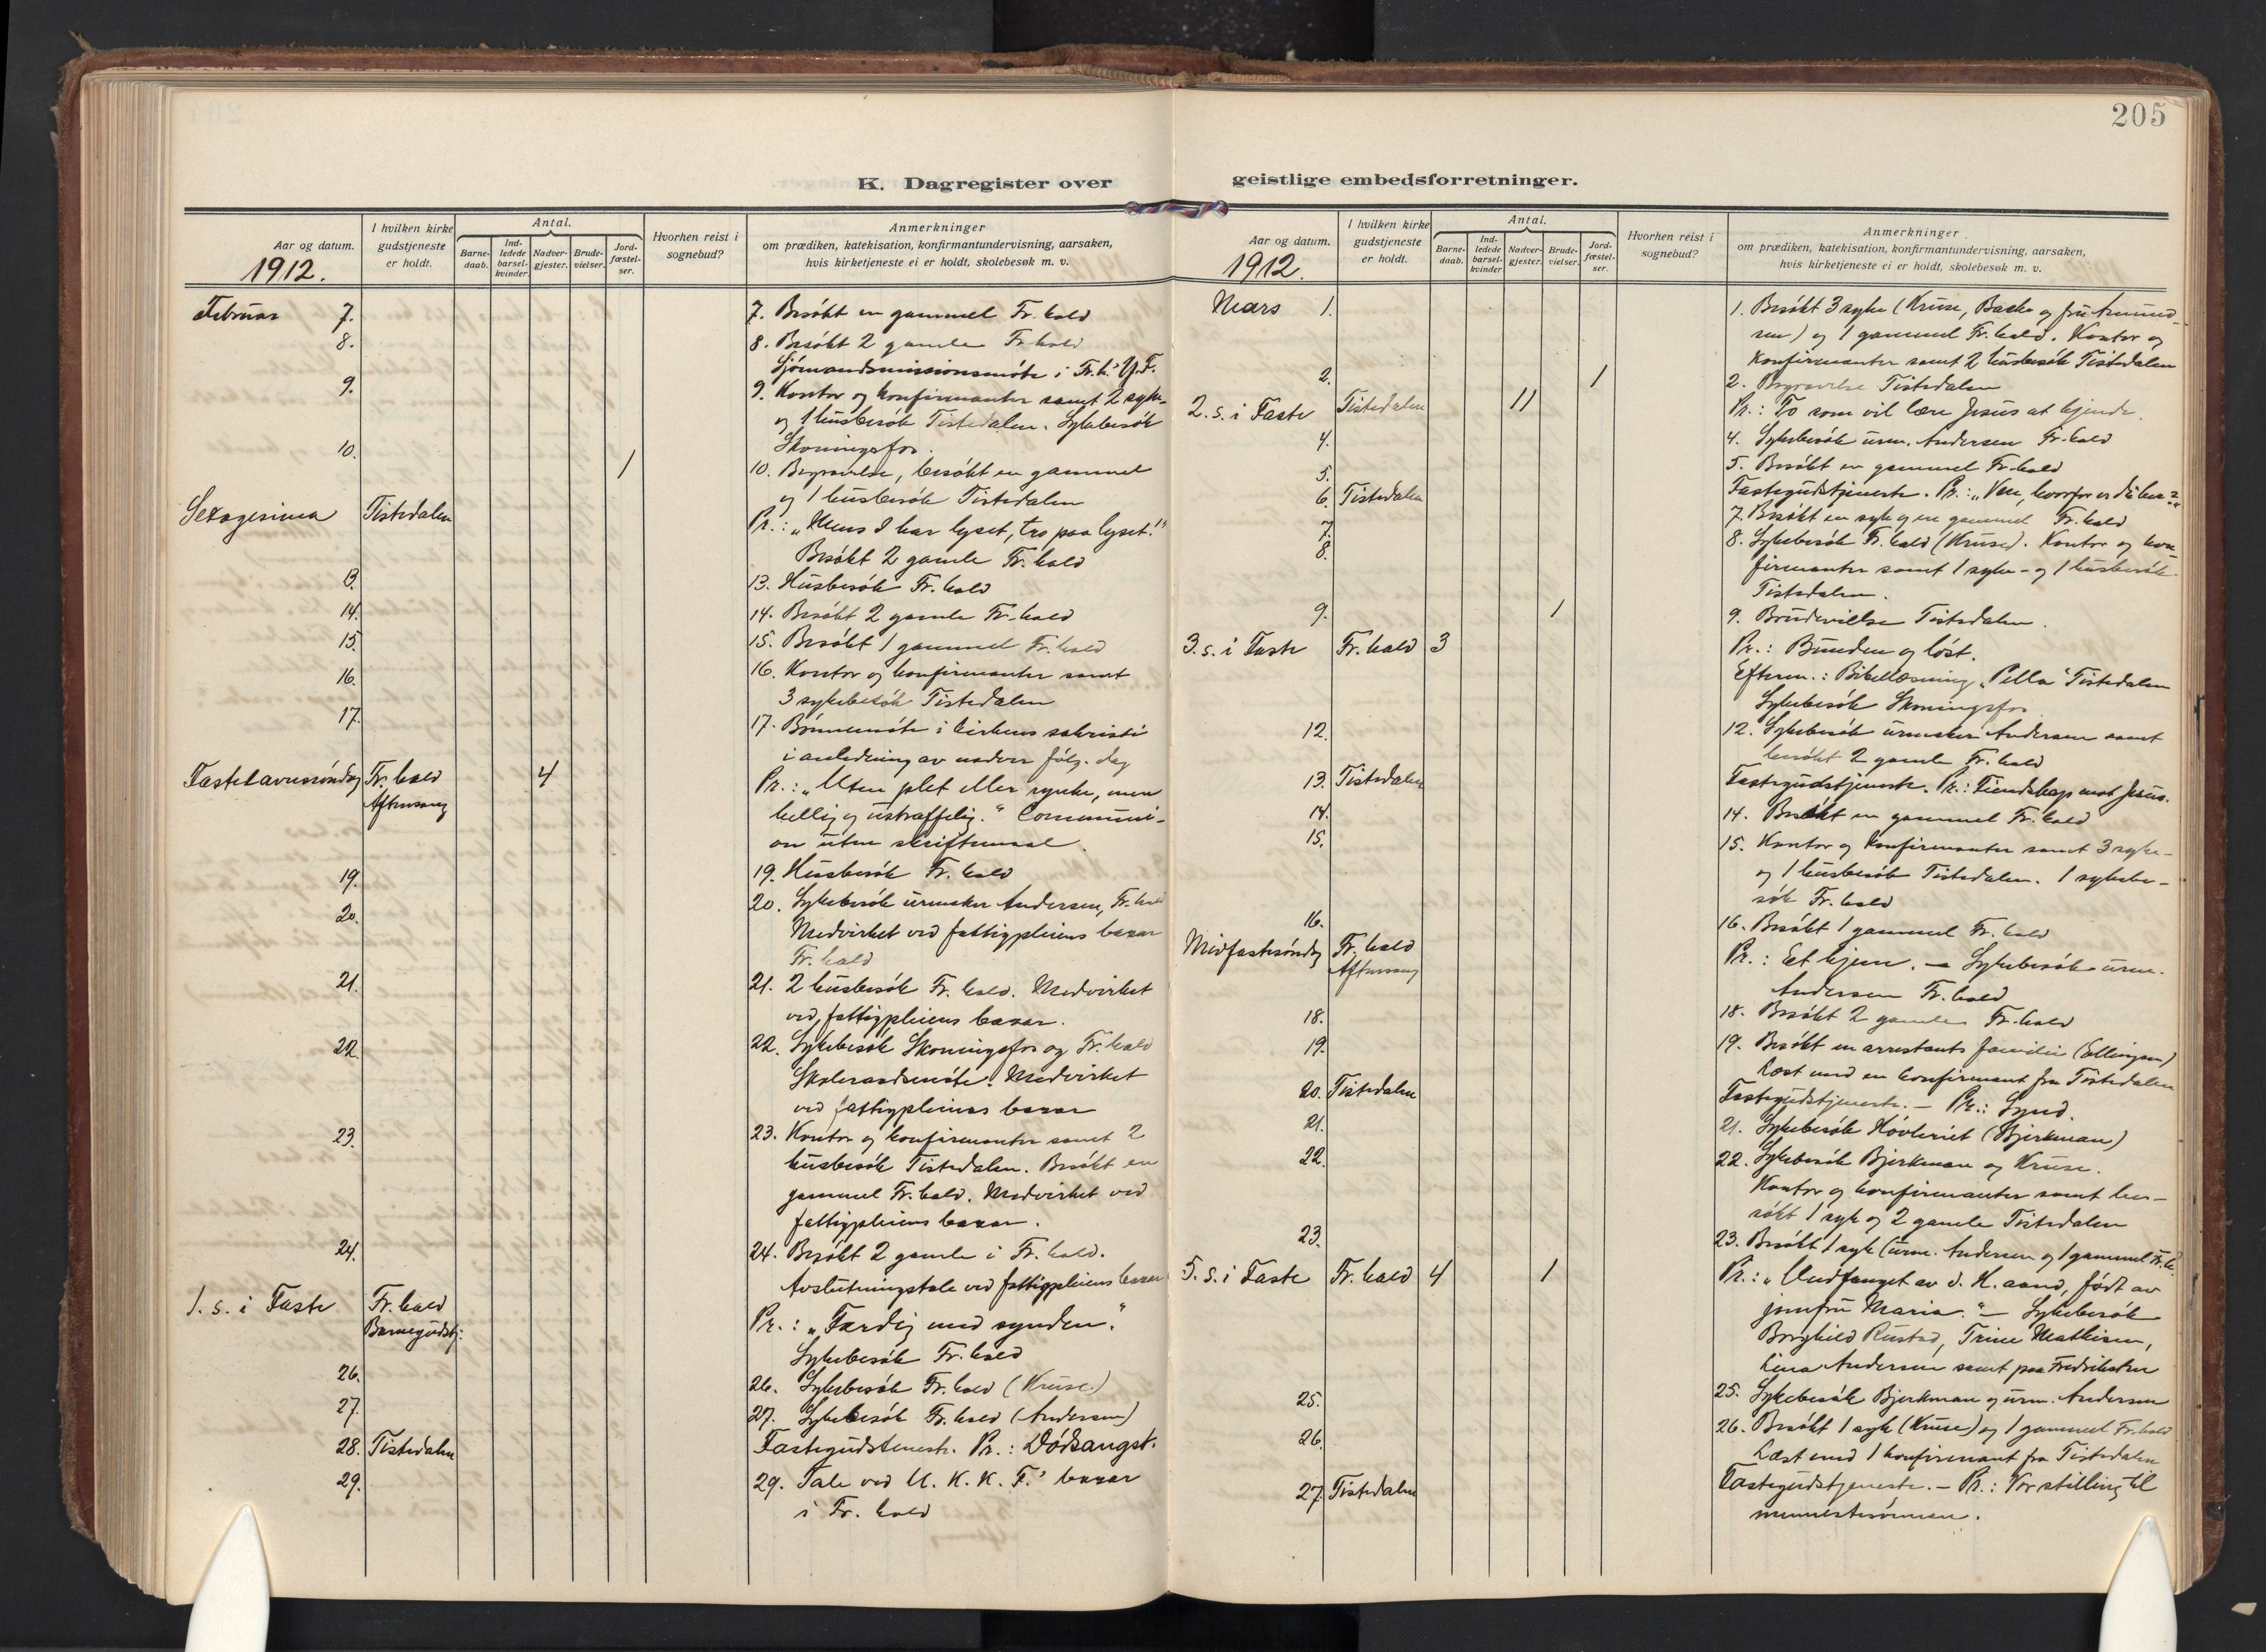 205
K. Dagregister over geistlige embedsforretninger.
Aar og datum.
1912.
I hvilken kirke gudstjeneste er holdt.
Antal.
Barne-daab.
Ind-ledede barsel-kvinder.
Nadver-gjester.
Brude-vielser.
Jord-fæstel-ser.
Hvorhen reist i sognebud?
Anmerkninger
om prædiken, katekisation, konfirmantundervisning, aarsaken,
hvis kirketjeneste ei er holdt, skolebesøk m. v.
Februar 7. 7. Besøkt en gammel Fr.hald
8. 8. Besøkt 2 gamle Fr.hald
Sjømandsmissionsmøte i Fr.h.' Y.F.
9. 9. Kontor og konfirmanter samt 2 syke-
og 1 husbesøk Tistedalen. Sykebesøk
Skoningsfos.
10. 1 10. Begravelse, besøkt en gammel
og 1 husbesøk Tistedalen
Sexagesima Tistedalen Pr.: „Mens I har lyset, tro paa lyset!"
Besøkt 2 gamle Fr.hald
13. 13. Husbesøk Fr.hald
14. 14. Besøkt 2 gamle Fr.hald
15. 15. Besøkt 1 gammel Fr.hald
16. 16. Kontor og konfirmanter samt
3 sykebesøk Tistedalen
17. 17. Bønnemøte i kirkens sakristi
i anledning av nadver følg. dag
Fastelavnssøndag Fr.hald 4 Pr.: „Uten plet eller rynke, men
Aftensang hellig og ustraffelig." Communi-
on uten skriftemaal.
19. 19. Husbesøk Fr.hald
20. 20. Sykebesøk urmaker Andersen, Fr.hald
Medvirket ved fattigpleiens basar
Fr.hald
21. 21. 2 husbesøk Fr.hald. Medvirket
ved fattigpleiens basar.
22. 22. Sykebesøk Skoningsfos og Fr.hald
Skoleraadsmøte. Medvirket
ved fattigpleiens basar
23. 23. Kontor og konfirmanter samt 2
husbesøk Tistedalen. Besøkt en
gammel Fr.hald. Medvirket ved
fattigpleiens basar.
24. 24. Besøkt 2 gamle i Fr.hald.
Avslutningstale ved fattigpleiens basar
1. s. i Faste Fr.hald Pr.: „Færdig med synden."
Barnegudstj. Sykebesøk Fr.hald
26. 26. Sykebesøk Fr.hald (Kruse)
27. 27. Sykebesøk Fr.hald (Andersen)
28. Tistedalen Fastegudstjeneste. Pr.: Dødsangst.
29. 29. Tale ved U. K. K. F.' basar
i Fr.hald
Aar og datum.
1912.
I hvilken kirke gudstjeneste er holdt.
Antal.
Barne-daab.
Ind-ledede barsel-kvinder
Nadver-gjester.
Brude-vielser.
Jord-fæstel-ser.
Hvorhen reist i sognebud?
Anmerkninger
om prædiken, katekisation, konfirmantundervisning, aarsaken,
hvis kirketjeneste ei er holdt, skolebesøk m. v.
Mars 1. 1. Besøkt 3 syke (Kruse, Bache og fru Amund-
sen) og 1 gammel Fr.hald. Kontor og
konfirmanter samt 2 husbesøk Tistedalen
2. 1 2. Begravelse Tistedalen
2. s. i Faste Tistedalen 11 Pr.: To som vil lære Jesus at kjende.
4. 4. Sykebesøk urm. Andersen Fr.hald
5. 5. Besøkt en gammel Fr.hald
6. Tistedalen Fastegudstjeneste. Pr.: „Ven, hvorfor er du her?"
7. 7. Besøkt en syk og en gammel Fr.hald
8. 8. Sykebesøk Fr.hald (Kruse). Kontor og kon-
firmanter samt 1 syke- og 1 husbesøk
Tistedalen.
9. 1 9. Brudevielse Tistedalen.
3. s. i Faste Fr.hald 3 Pr.: Bunden og løst.
Efterm.: Bibellæsning „Pella" Tistedalen
Sykebesøk Skoningsfos
12. 12. Sykebesøk urmaker Andersen samt
besøkt 2 gamle Fr.hald
13. Tistedalen Fastegudstjeneste. Pr.: Fiendskap mot Jesus.
14. 14. Besøkt en gammel Fr.hald
15. 15. Kontor og konfirmanter samt 3 syke-
og 1 husbesøk Tistedalen. 1 sykebe-
søk Fr.hald
16. 16. Besøkt 1 gammel Fr.hald
Midfastesøndag Fr.hald Pr.: Et hjem. — Sykebesøk urm.
Aftensang Andersen Fr.hald
18. 18. Besøkt 2 gamle Fr.hald
19. 19. Besøkt en arrestants familie (Ellingsen)
Læst med en konfirmant fra Tistedalen
20. Tistedalen Fastegudstjeneste. — Pr.: Synd.
21. 21. Sykebesøk Høvleriet (Bjerkman)
22. 22. Sykebesøk Bjerkman og Kruse.
Kontor og konfirmanter samt be-
søkt 1 syk og 2 gamle Tistedalen
23. 23. Besøkt 1 syk (urm. Andersen og 1 gammel Fr.h.
5. s. i Faste Fr.hald 4 1 Pr.: „Undfanget av d. H. aand, født av
jomfru Maria." — Sykebesøk
Borghild Rustad, Trine Mathisen,
Lina Andersen samt paa Fredriksten
25. 25. Sykebesøk Bjerkman og urm. Andersen
26. 26. Besøkt 1 syk (Kruse) og 1 gammel Fr.hald
Læst med 1 konfirmant fra Tistedalen
27. Tistedalen Fastegudstjeneste. — Pr.: Vor stilling til
menneskesønnen.